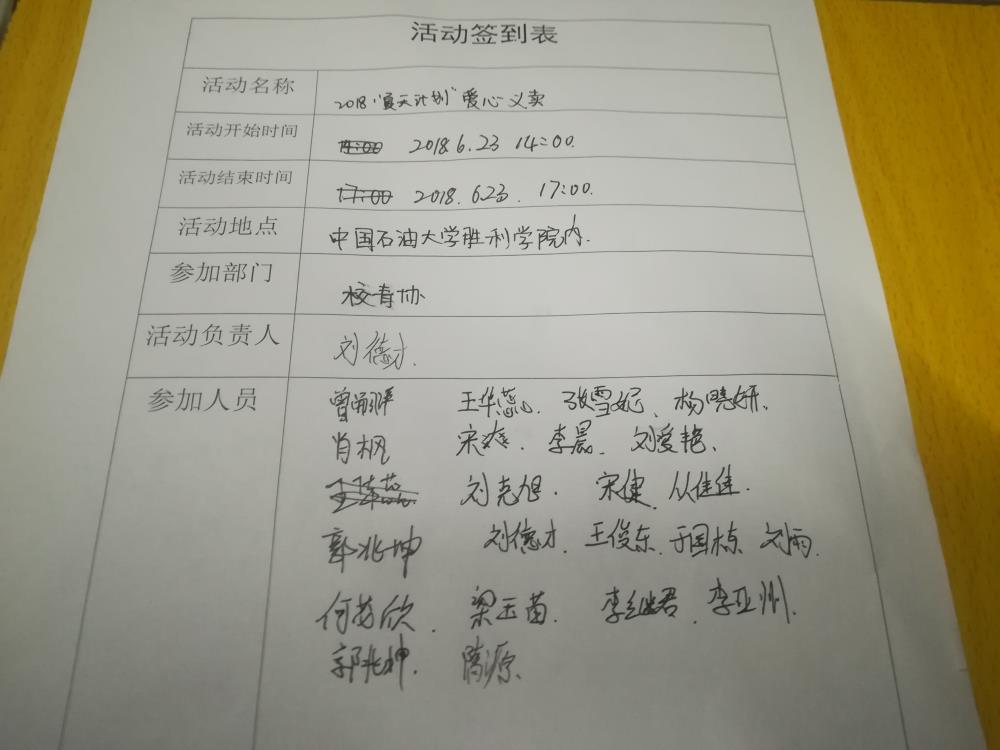 活动签到表
活动名称 2018“夏天计划”爱心义卖
活动开始时间 14:00 2018.6.23 14:00.
活动结束时间 17:00 2018.6.23. 17:00.
活动地点 中国石油大学胜利学院内.
参加部门 校青协
活动负责人 刘德才.
参加人员 曾 王华蕊. 张雪妮、杨晓妍.
肖枫 宋爽. 李晨. 刘爱艳、
刘克旭. 宋健. 从佳佳.
郭兆坤 刘德才. 王俊东. 于国栋. 刘雨.
何芳欣. 梁玉苗. 李继君. 李亚州.
郭兆坤. 腾源.